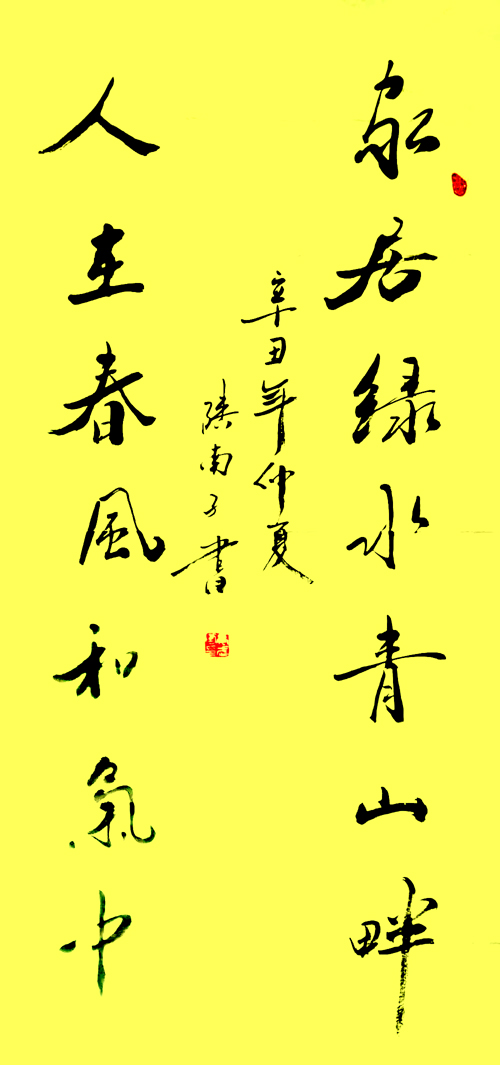 家居绿水青山畔
人在春風和氣中
辛丑年仲夏
陕南子書